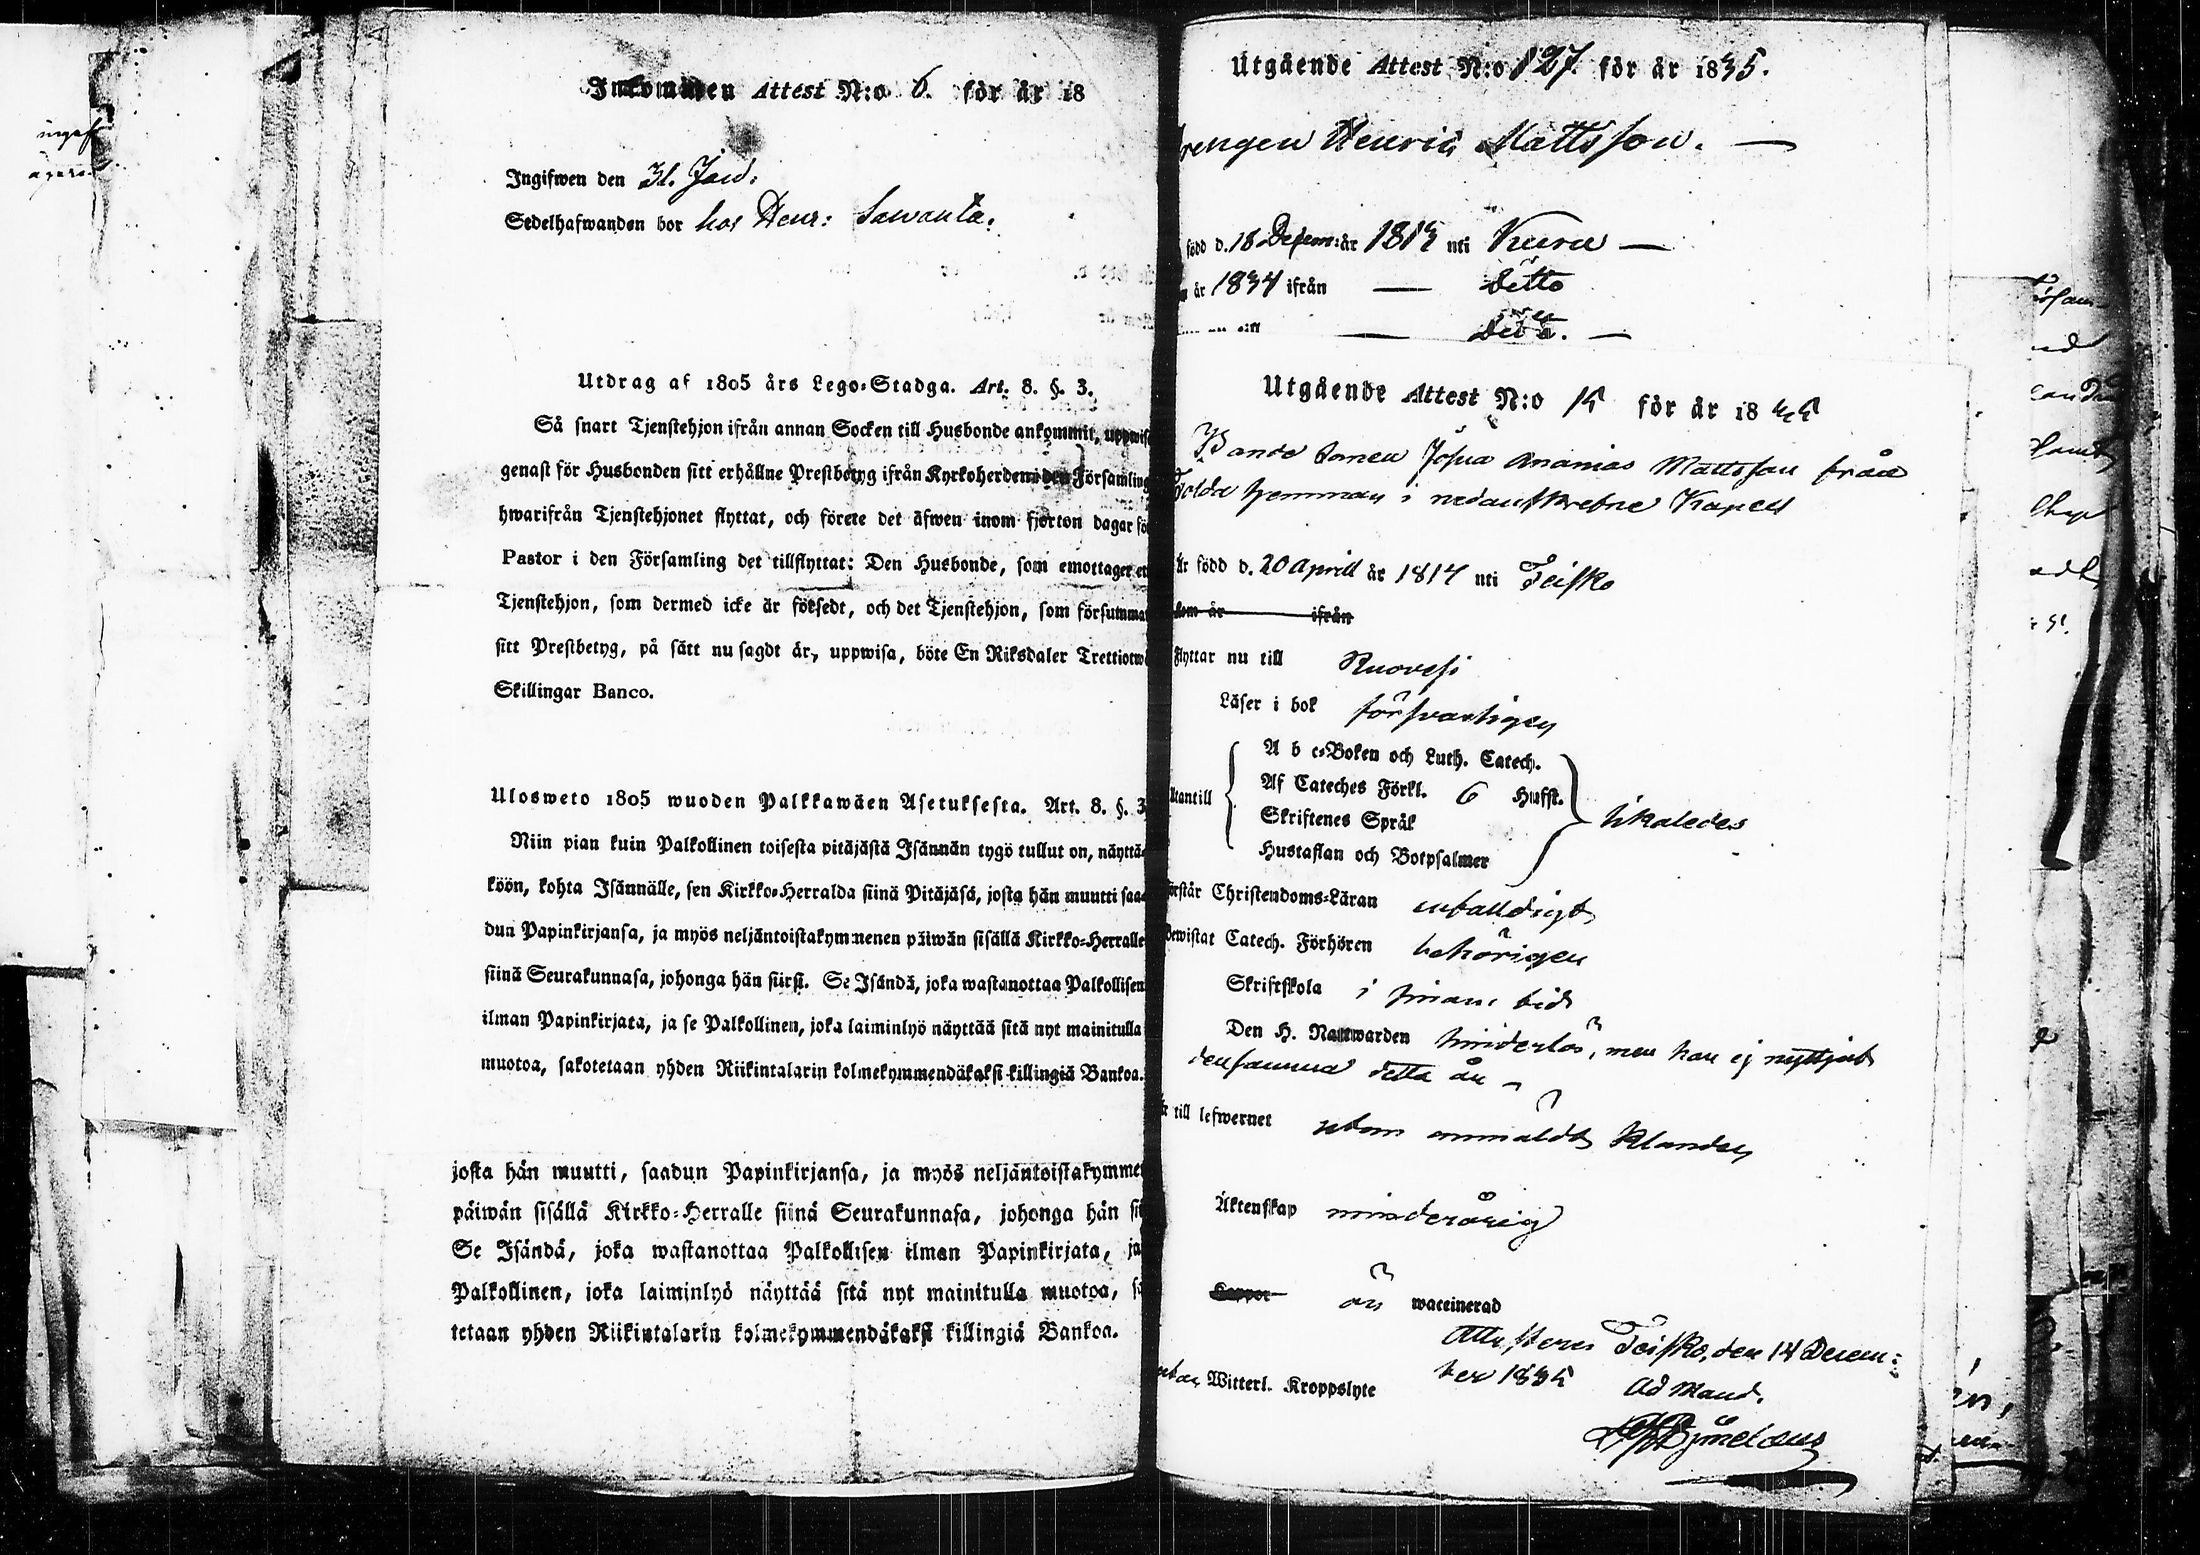 Inkommen Attest N:o 6. för år 18
Ingifwen den 31. Jan:
Sedelhafwanden bor hos Henr: Sawanta.
Utdrag af 1805 års Lego-Stadga. Art. 8. §. 3.
Så snart Tjenstehjon ifrån annan Socken till Husbonde ankommit, uppwise
genast för Husbonden sitt erhållne Prestbetyg ifrån Kyrkoherden i den Församling
hwarifrån Tjenstehjonet flyttat, och förete det äfwen inom fjorton dagar för
Pastor i den Församling det tillflyttat: Den Husbonde, som emottager et
Tjenstehjon, som dermed icke är försedt, och det Tjenstehjon, som försummat
sitt Prestbetyg, på sätt nu sagdt är, uppwisa, böte En Riksdaler Trettiotwå
Skillingar Banco.
Ulosweto 1805 wuoden Palkkawäen Asetuksesta. Art. 8. §. 3
Niin pian kuin Palkollinen toisesta pitäjästä Isännän tygö tullut on, näyttä-
köön, kohta Isännälle, sen Kirkko-Herralda siinä Pitäjäsä, josta hän muutti saa-
dun Papinkirjansa, ja myös neljäntoistakymmenen päiwän sisällä Kirkko-Herralle
siinä Seurakunnasa, johonga hän siirsi. Se Isändä, joka wastanottaa Palkollisen
ilman Papinkirjata, ja se Palkollinen, joka laiminlyö näyttää sitä nyt mainitulla
muotoa, sakotetaan yhden Riikintalarin kolmekymmendäkaksi killingiä Bankoa.
josta hän muutti, saadun Papinkirjansa, ja myös neljäntoistakymme
päiwän sisällä Kirkko-Herralle siinä Seurakunnasa, johonga hän sii
Se Isändä, joka wastanottaa Palkollisen ilman Papinkirjata, ja
Palkollinen, joka laiminlyö näyttää sitä nyt mainitulla muotoa, s
tetaan yhden Riikintalarin kolmekymmendäkaksi killingiä Bankoa.
Utgående Attest N:o 127. för år 1835.
rengen Henric Mattsson.
född d. 18 Decem: år 1813 uti Kuru
år 1834 ifrån Ditto
till Ditto.
Utgående Attest N:o 15 för år 1835
Bonde Sonen Josua Ananias Mattsson från
Tolda hemman i nedanskrefne Kapell
Är född d. 20 Aprill år 1817 uti Teisko
som år ifrån
Flyttar nu till Ruovesi
Läser i bok försvarligen
A b c-Boken och Luth. Catech.
Utantill Af Cateches Förkl. 6 Hufst. likaledes
Skriftenes Språk
Hustaflan och Botpsalmer
Förstår Christendoms-Läran enfalldigt
Bewistat Catech. Förhören behörigen
Skriftskola i sinom tid
Den H. Nattwarden hinderlös, men han ej nyttjat
densamma detta år
Är till lefwernet utom anmäldt klander
Äktenskap minderårig
Koppor är waccinerad
Attesteras Teisko, den 14 Decem:
ber 1835
utan Witterl. Kroppslyte Ad Mand.
Björklund